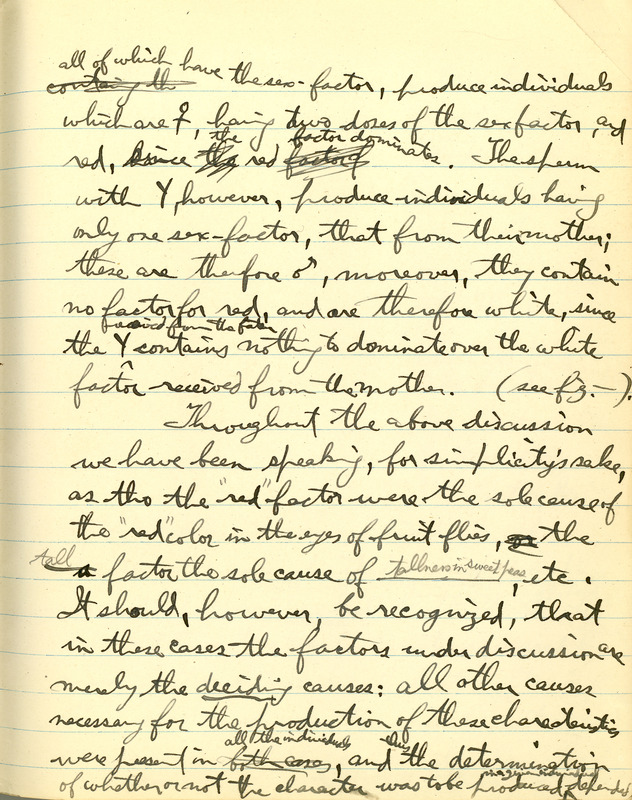 all of which have the sex-factor, produce individuals
containg th
which are ♀, having two doses of the sex factor, and
the factor dominates
red, since the red factor of . The sperm
with Y, however, produce individuals having
only one sex-factor, that from their mother;
these are therfore ♂, moreover, they contain
no factor for red, and are therefore white, since
received from the father
the Y contains nothing to dominate over the white
factor received from the mother. (see fig. —).
Throughout the above discussion
we have been speaking, for simplicity's sake,
as tho the "red" factor were the sole cause of
the "red" color in the eyes of fruit flies, or the
tall
a factor the sole cause of tallness in sweet peas, etc.
It should, however, be recognized, that
in these cases the factors under discussion are
merely the deciding causes: all other causes
necessary for the production of these characteristics
all the individuals thus
were present in both cases, and the determination
in a given individual
of whether or not the character was to be produced, depended